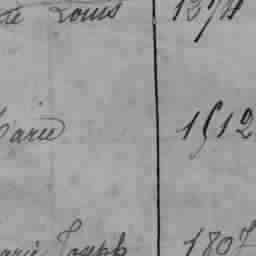 de Louis 1374
Marie 1512
Marie Joseph 1807